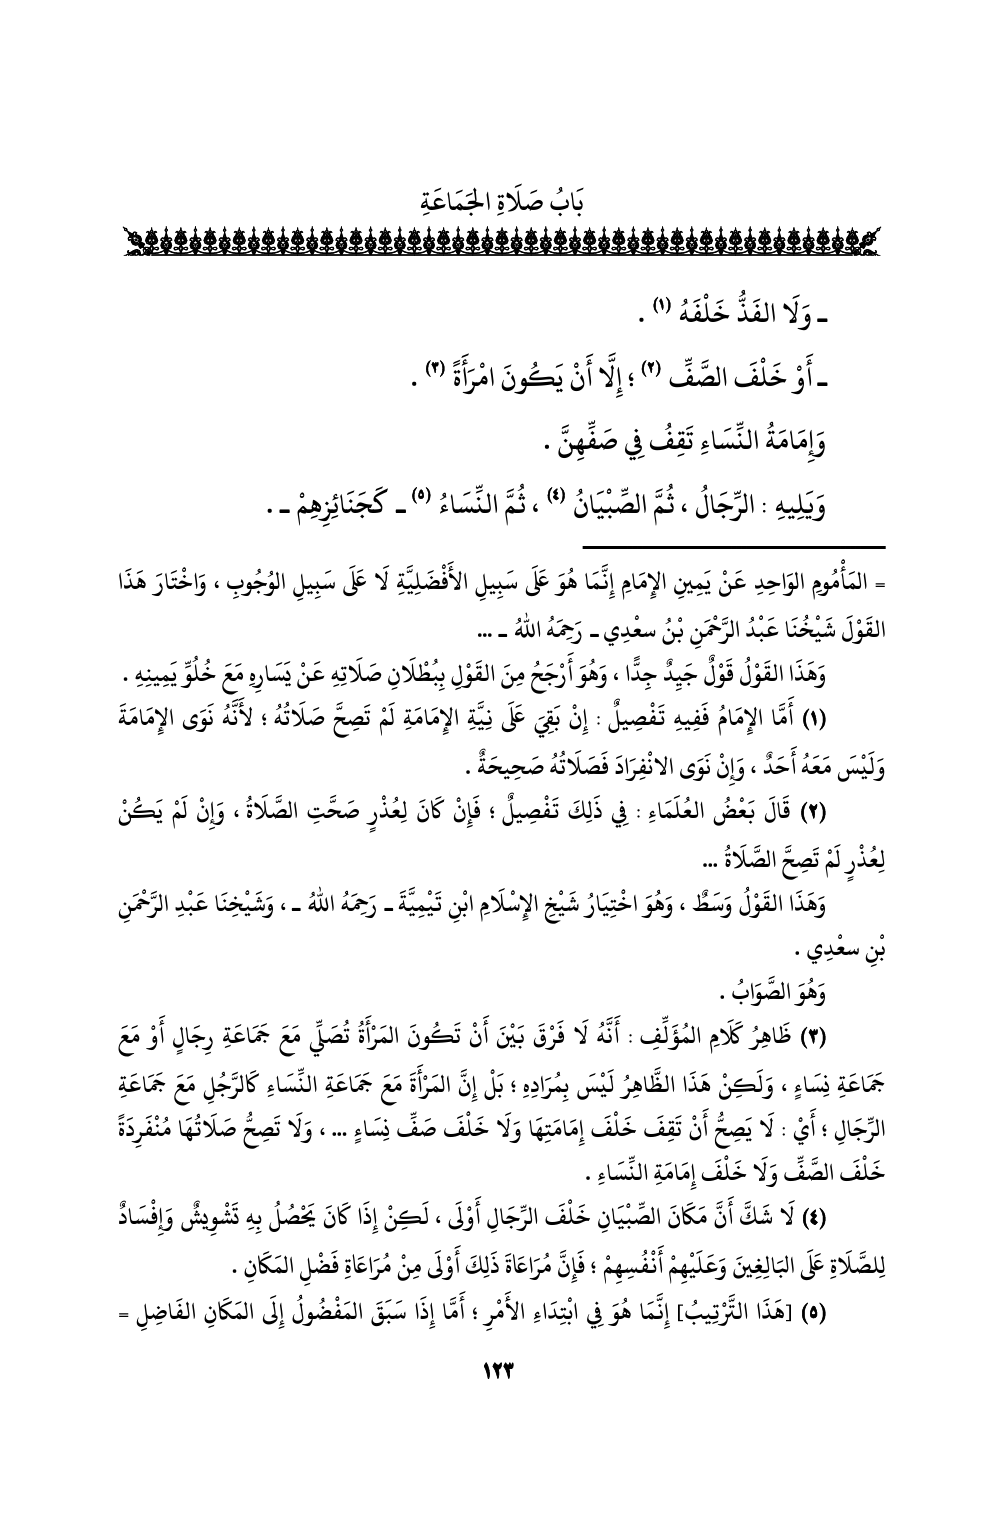 بَابُ صَلَاةِ الجَمَاعَةِ
ـ وَلَا الفَذُّ خَلْفَهُ (١) .
ـ أَوْ خَلْفَ الصَّفِّ (٢) ؛ إِلَّا أَنْ يَكُونَ امْرَأَةً (٣) .
وَإِمَامَةُ النِّسَاءِ تَقِفُ فِي صَفِّهِنَّ .
وَيَلِيهِ : الرِّجَالُ ، ثُمَّ الصِّبْيَانُ (٤) ، ثُمَّ النِّسَاءُ (٥) ـ كَجَنَائِزِهِمْ ـ .
= المَأْمُومِ الوَاحِدِ عَنْ يَمِينِ الإِمَامِ إِنَّمَا هُوَ عَلَى سَبِيلِ الأَفْضَلِيَّةِ لَا عَلَى سَبِيلِ الوُجُوبِ ، وَاخْتَارَ هَذَا
القَوْلَ شَيْخُنَا عَبْدُ الرَّحْمَنِ بْنُ سعْدِي ـ رَحِمَهُ اللهُ ـ ...
وَهَذَا القَوْلُ قَوْلٌ جَيِدٌ جِدًّا ، وَهُوَ أَرْجَحُ مِنَ القَوْلِ بِبُطْلَانِ صَلَاتِهِ عَنْ يَسَارِهِ مَعَ خُلُوِّ يَمِينِهِ .
(١) أَمَّا الإِمَامُ فَفِيهِ تَفْصِيلٌ : إِنْ بَقِيَ عَلَى نِيَّةِ الإِمَامَةِ لَمْ تَصِحَّ صَلَاتُهُ ؛ لأَنَّهُ نَوَى الإِمَامَةَ
وَلَيْسَ مَعَهُ أَحَدٌ ، وَإِنْ نَوَى الانْفِرَادَ فَصَلَاتُهُ صَحِيحَةٌ .
(٢) قَالَ بَعْضُ العُلَمَاءِ : فِي ذَلِكَ تَفْصِيلٌ ؛ فَإِنْ كَانَ لِعُذْرٍ صَحَّتِ الصَّلَاةُ ، وَإِنْ لَمْ يَكُنْ
لِعُذْرٍ لَمْ تَصِحَّ الصَّلَاةُ ...
وَهَذَا القَوْلُ وَسَطٌ ، وَهُوَ اخْتِيَارُ شَيْخِ الإِسْلَامِ ابْنِ تَيْمِيَّةَ ـ رَحِمَهُ اللهُ ـ ، وَشَيْخِنَا عَبْدِ الرَّحْمَنِ
بْنِ سعْدِي .
وَهُوَ الصَّوَابُ .
(٣) ظَاهِرُ كَلَامِ المُؤَلِّفِ : أَنَّهُ لَا فَرْقَ بَيْنَ أَنْ تَكُونَ المَرْأَةُ تُصَلِّي مَعَ جَمَاعَةِ رِجَالٍ أَوْ مَعَ
جَمَاعَةِ نِسَاءٍ ، وَلَكِنْ هَذَا الظَّاهِرُ لَيْسَ بِمُرَادِهِ ؛ بَلْ إِنَّ المَرْأَةَ مَعَ جَمَاعَةِ النِّسَاءِ كَالرَّجُلِ مَعَ جَمَاعَةِ
الرِّجَالِ ؛ أَيْ : لَا يَصِحُّ أَنْ تَقِفَ خَلْفَ إِمَامَتِهَا وَلَا خَلْفَ صَفِّ نِسَاءٍ ... ، وَلَا تَصِحُّ صَلَاتُهَا مُنْفَرِدَةً
خَلْفَ الصَّفِّ وَلَا خَلْفَ إِمَامَةِ النِّسَاءِ .
(٤) لَا شَكَّ أَنَّ مَكَانَ الصِّبْيَانِ خَلْفَ الرِّجَالِ أَوْلَى ، لَكِنْ إِذَا كَانَ يَحْصُلُ بِهِ تَشْوِيشٌ وَإِفْسَادٌ
لِلصَّلَاةِ عَلَى البَالِغِينَ وَعَلَيْهِمْ أَنْفُسِهِمْ ؛ فَإِنَّ مُرَاعَاةَ ذَلِكَ أَوْلَى مِنْ مُرَاعَاةِ فَضْلِ المَكَانِ .
(٥) [هَذَا التَّرْتِيبُ] إِنَّمَا هُوَ فِي ابْتِدَاءِ الأَمْرِ ؛ أَمَّا إِذَا سَبَقَ المَفْضُولُ إِلَى المَكَانِ الفَاضِلِ =
١٢٣